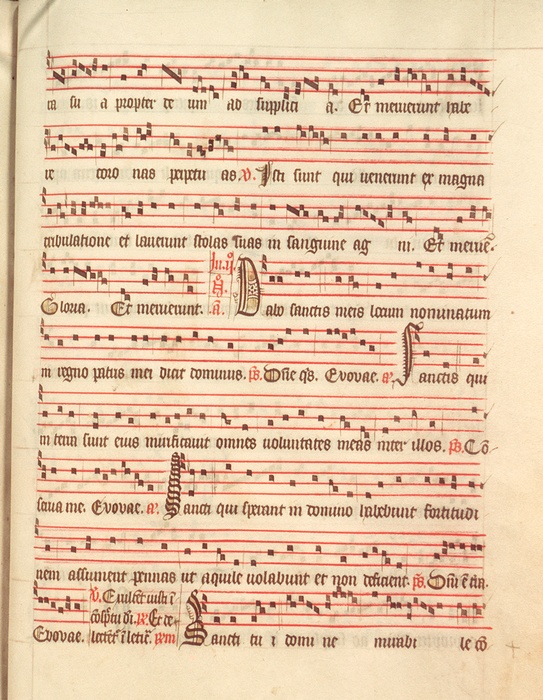 ca su a propter de um ad supplici a. Et meruerunt habe
re coro nas perpetu as. V. Isti sunt qui uenerunt ex magna
tribulatione et lauerunt stolas suas in sanguine ag ni. Et merue
Gloria. Et meruerunt. In ij. N. a. Dabo sanctis meis locum nominatum
in regno patris mei dicit dominus. ps. Dne qs. Evovae. a. Sanctis qui
in terra sunt eius mirificauit omnes uoluntates meas inter illos. ps. Cō
serua me. Evovae. a. Sancti qui sperant in domino habebunt fortitudi
nem assument pennas ut aquile uolabunt et non deficient. ps. Dñi ē tra.
Evovae. Sancti tu i domi ne mirabi le cō